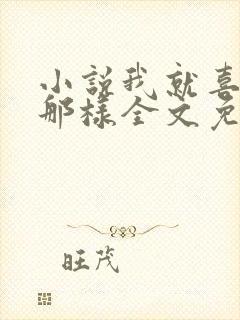 小説我就喜
那樣全文免
旺茂